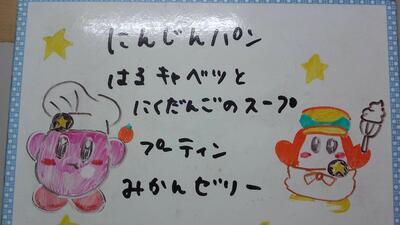 にんじんパン
はるキャベツと
にくだんごのスープ
プーティン
みかんゼリー